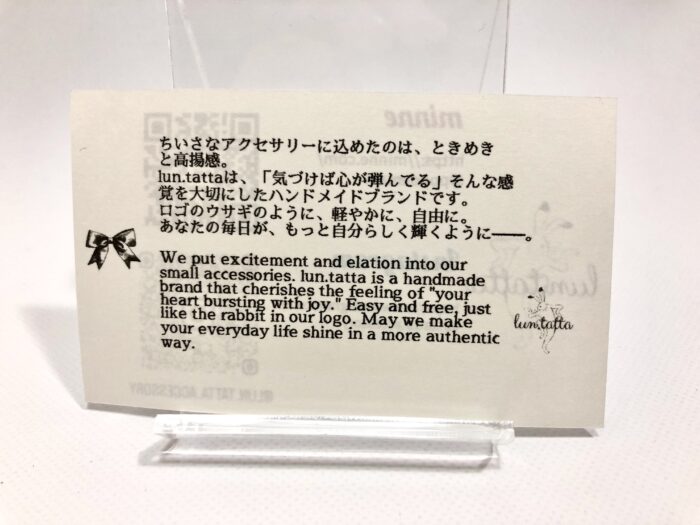 ちいさなアクセサリーに込めたのは、ときめき
と高揚感。
lun.tattaは、「気づけば心が弾んでる」そんな感
覚を大切にしたハンドメイドブランドです。
ロゴのウサギのように、軽やかに、自由に。
あなたの毎日が、もっと自分らしく輝くように――。
We put excitement and elation into our
small accessories. lun.tatta is a handmade
brand that cherishes the feeling of "your
heart bursting with joy." Easy and free, just
like the rabbit in our logo. May we make
your everyday life shine in a more authentic
way.
lun.tatta
minne
https://minne.com/
lun.tatta
@LUN.TATTA.ACCESSORY